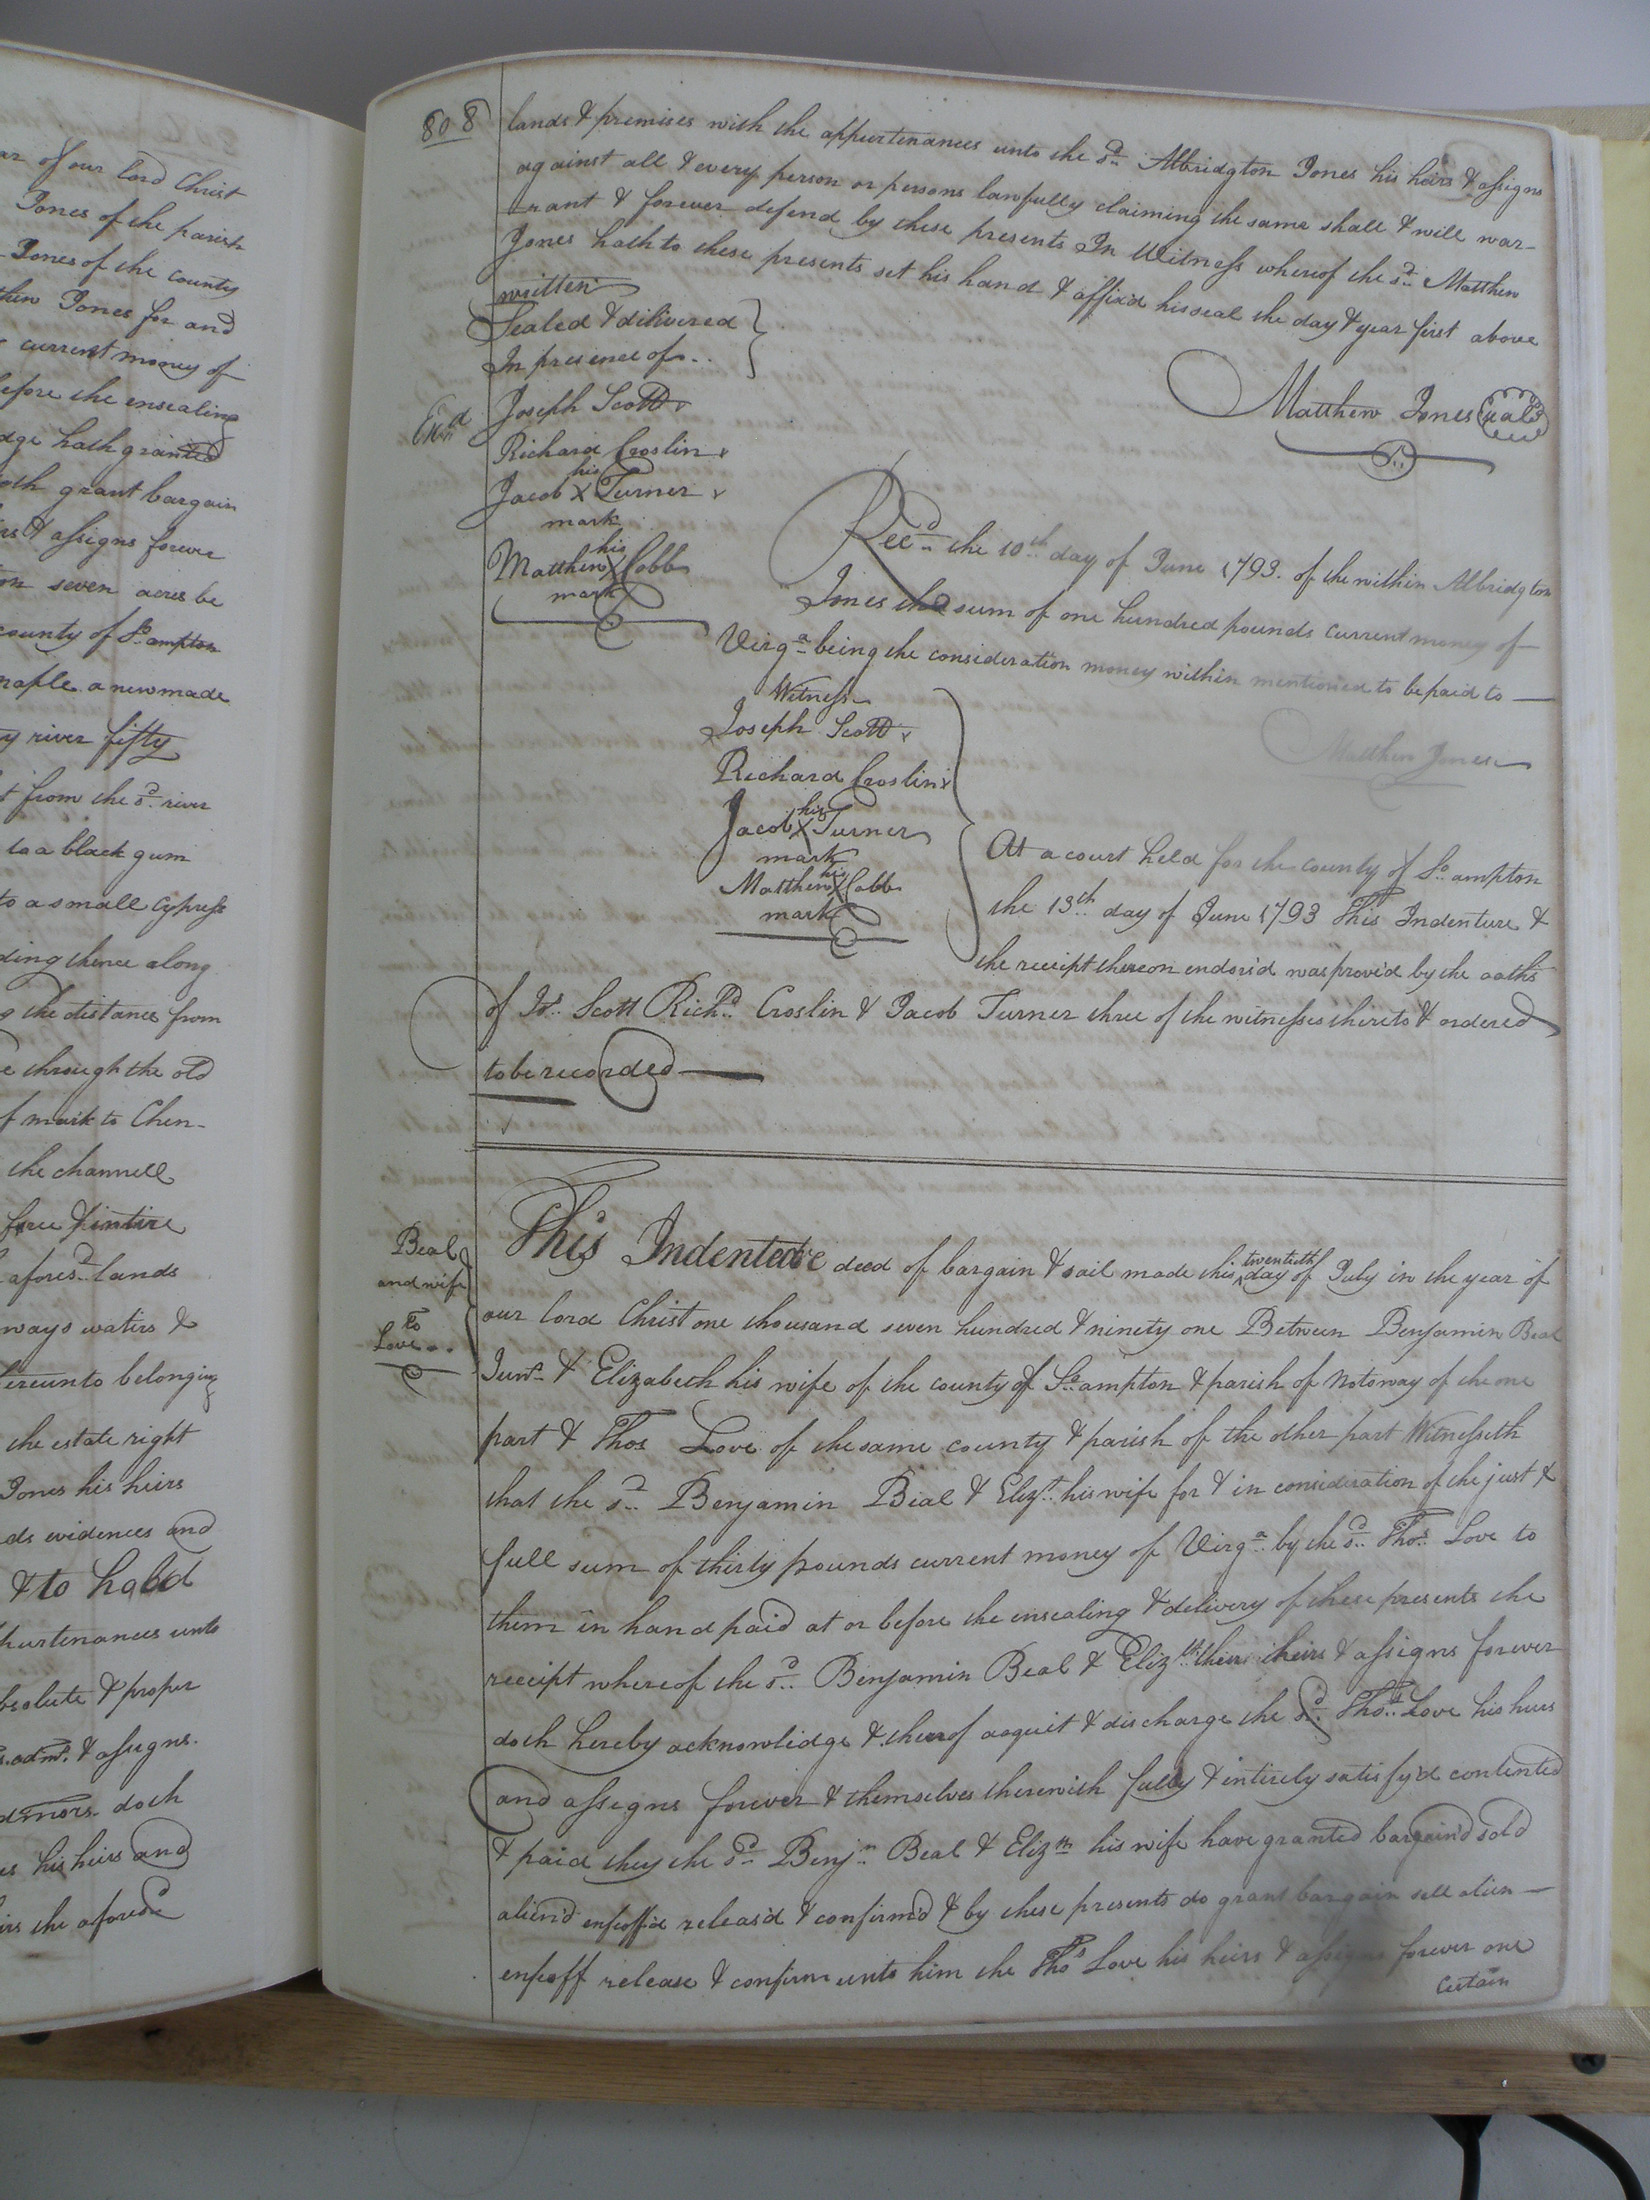 ar of our Lord Christ
Jones of the parish
Jones of the county
thew Jones for and
current money of
efore the ensealing
dge hath granted
oth grant bargain
rs & assigns forever
on seven acres be
county of So. ampton
maple a new made
y river fifty
t from the sd. river
to a black gum
to a small cypress
ding thence along
g the distance from
e through the old
f mark to Chen-
the channell
free & intire
aforesd. lands
ways waters &
hereunto belonging
the estate right
Jones his heirs
ds evidences and
& to hold
purtenances unto
bsolute & proper
s. adms. & assigns.
dmors. doth
es his heirs and
irs the aforesd
808
lands & premises with the appurtenances unto the sd. Albridgton Jones his heirs & assigns
against all & every person or persons lawfully claiming the same shall & will war-
rant & forever defend by these presents In Witness whereof the sd. Matthew
Jones hath to these presents set his hand & affixd his seal the day & year first above
written
Sealed & dilivered
In presence of ..
Joseph Scott
Exnd
Matthew Jones seal
Richard Croslin
his
Jacob X Turner
mark
his
Matthew X Cobb
mark
Recd. the 10th day of June 1793. of the within Albridgton
Jones the sum of one hundred pounds current money of
Virga. being the consideration money within mentioned to be paid to
Witness
Joseph Scott
Matthew Jones
Richard Croslin
his
Jacob X Turner
mark
his
Matthew X Cobb
mark
At a court held for the county of So. ampton
the 13th day of June 1793 This Indenture &
the receipt thereon endors'd was prov'd by the oaths
of Js. Scott Richd. Croslin & Jacob Turner three of the witnesses thereto & ordered
to be recorded
Beal
and wife
To
Love..
This Indenture deed of bargain & sail made this twentieth day of July in the year of
our lord Christ one thousand seven hundred & ninety one Between Benjamin Beal
Junr. & Elizabeth his wife of the county of So. ampton & parish of Notoway of the one
part & Thos Love of the same county & parish of the other part Witnesseth
that the sd. Benjamin Beal & Elizt. his wife for & in consideration of the just &
full sum of thirty pounds current money of Virga. by the sd. Thos. Love to
them in hand paid at or before the ensealing & delivery of these presents the
receipt whereof the sd. Benjamin Beal & Elizth. their heirs & assigns forever
doth hereby acknowlidge & thereof acquit & discharge the sd. Thos. Love his heirs
and assigns forever & themselves therewith fully & intirely satisfy'd contented
& paid they the sd. Benjn. Beal & Elizth his wife have granted bargain'd sold
alien'd enfeoff'd releas'd & confirm'd & by these presents do grant bargain sell alien
enfeoff release & confirm unto him the Thos Love his heirs & assigns forever one
certain